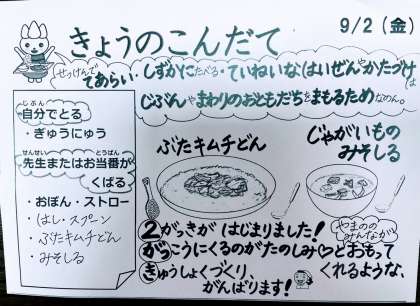 9/2 (金)
きょうのこんだて
せっけんで
てあらい・しずかにたべる・ていねいなはいぜんやかたづけは
じぶんやまわりのおともだちをまもるためなのん。
じぶん
自分でとる
・ぎゅうにゅう
せんせい とうばん
先生またはお当番が
くばる
・おぼん・ストロー
・はし・スプーン
・ぶたキムチどん
・みそしる
ぶたキムチどん
じゃがいもの
みそしる
2がっきが はじまりました!
やまのの
みんなが
がっこうにくるのがたのしみ♡とおもって
きゅうしょくづくり、 くれるような、
がんばります!